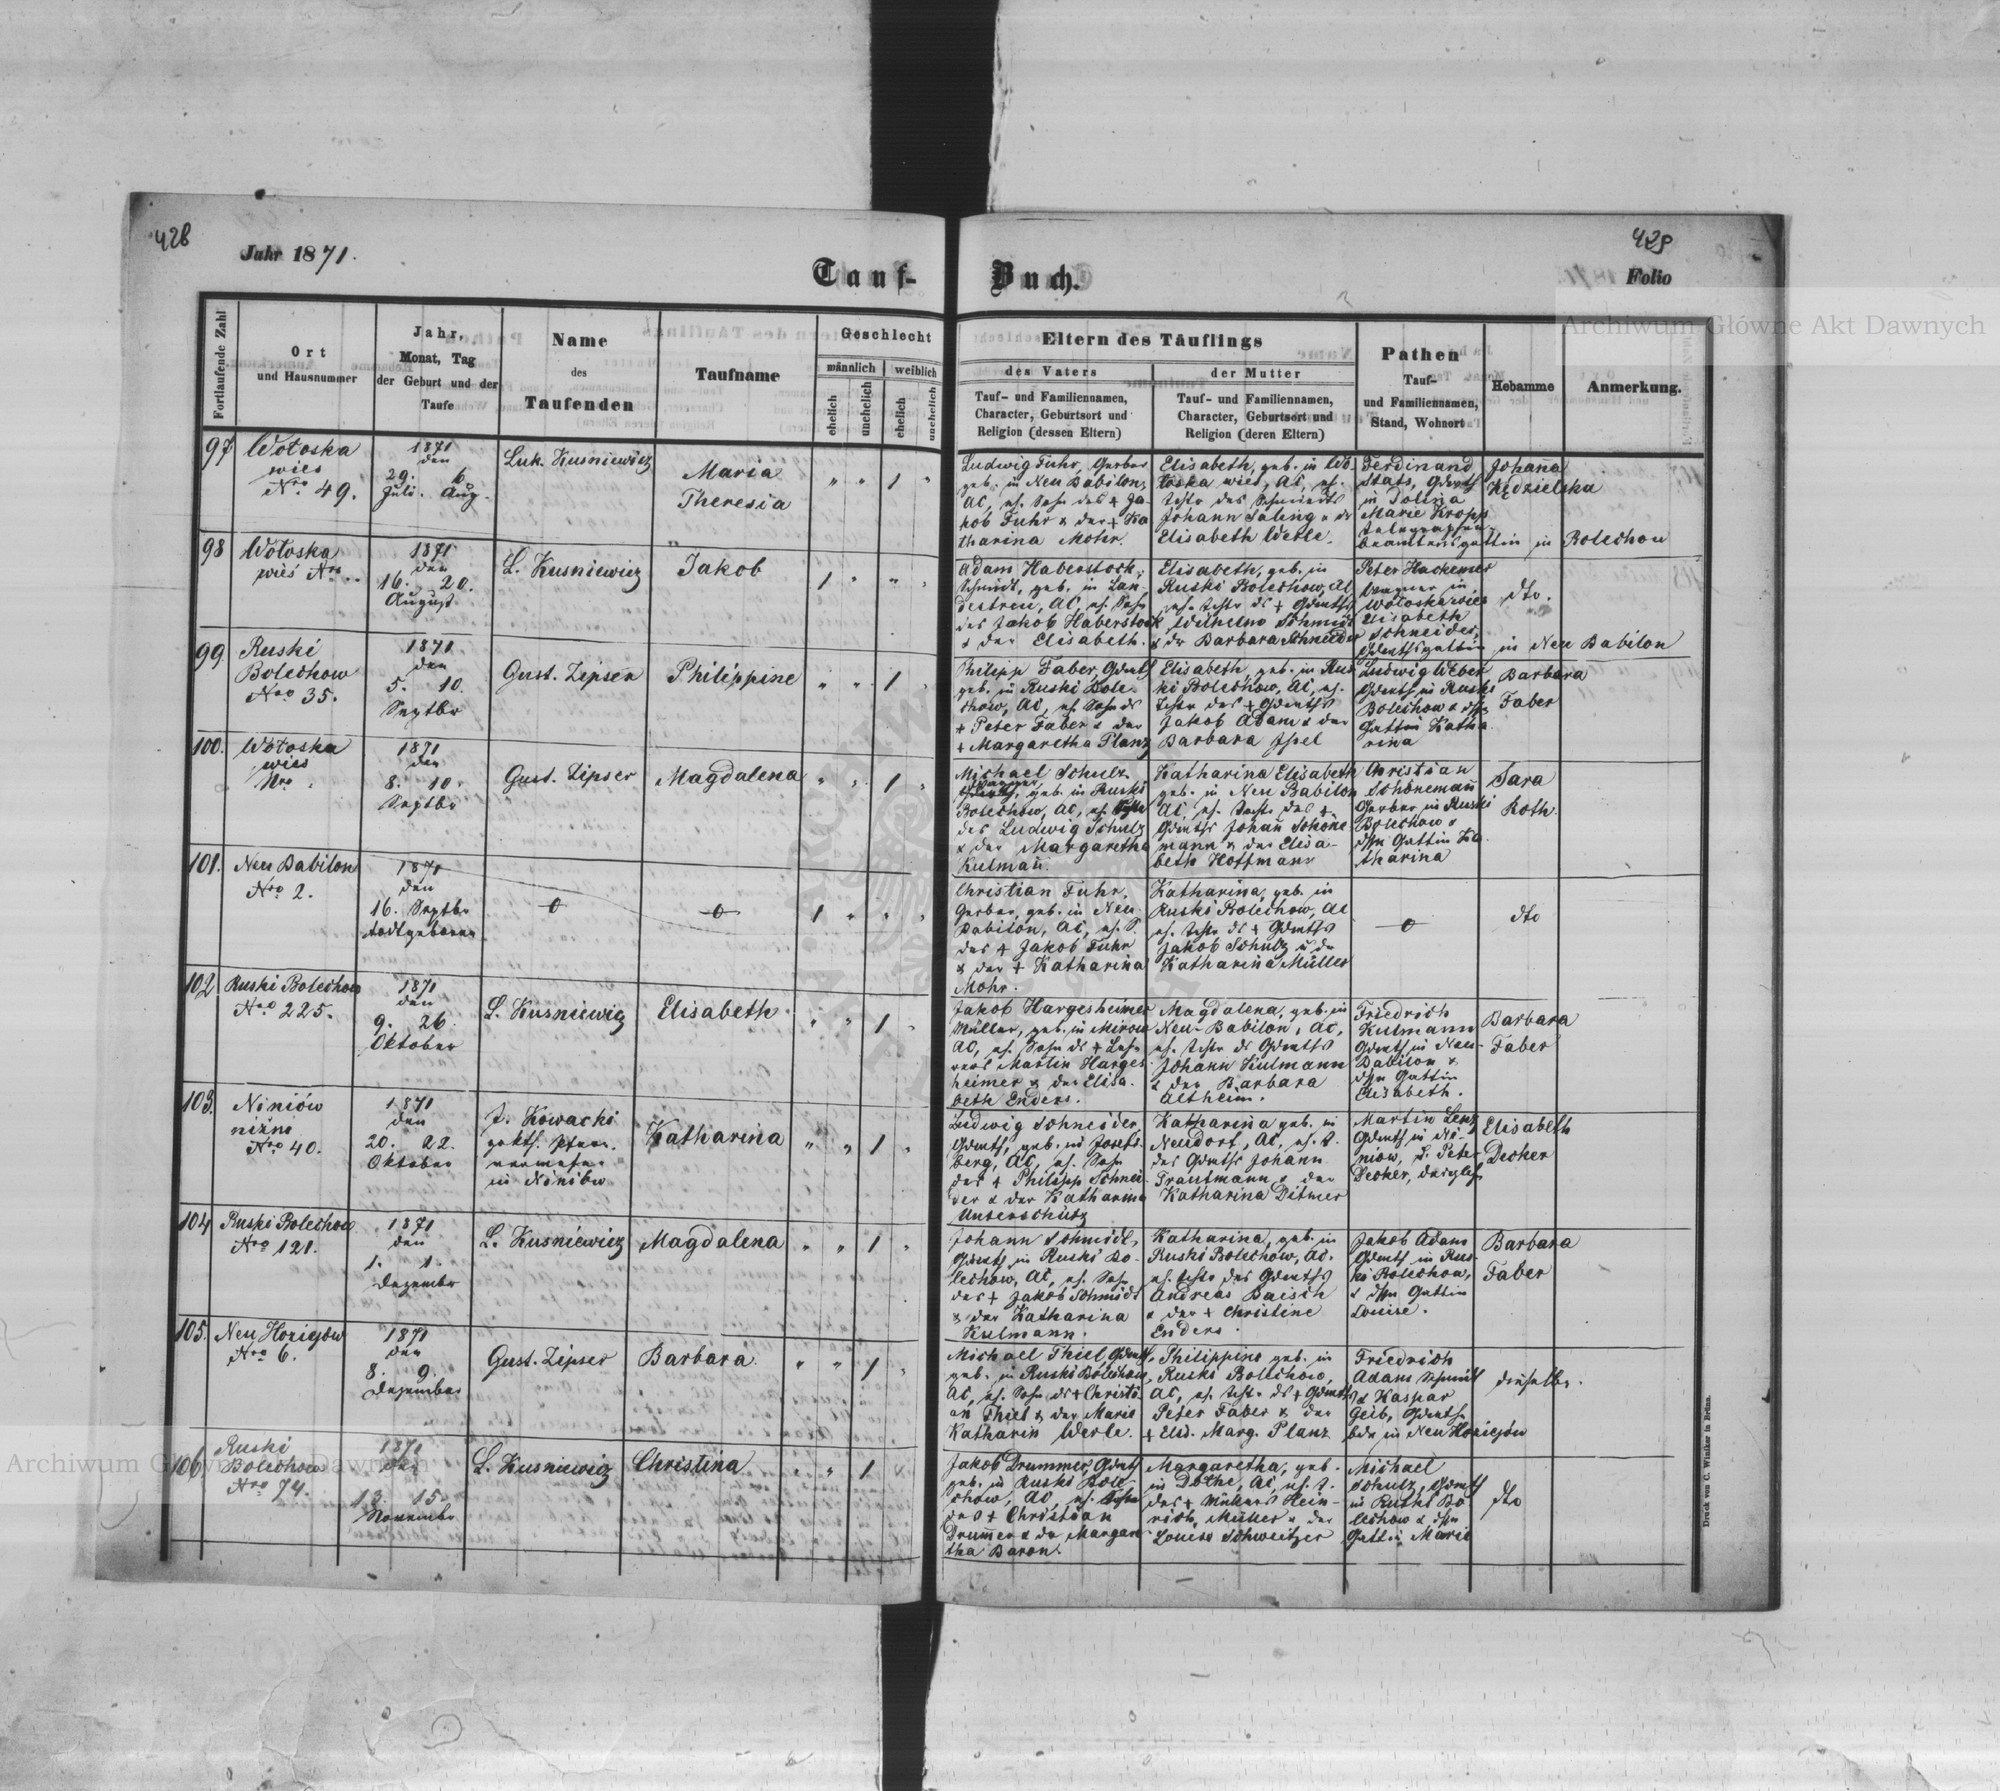 428
Jahr 1871.
Tauf-
Buch.
429
Folio
Archiwum Główne Akt Dawnych
Fortlaufende Zahl
Ort
und Hausnummer
Jahr,
Monat, Tag
der Geburt und der
Taufe
Name
des
Taufenden
Taufname
Geschlecht
männlich
weiblich
ehelich
unehelich
ehelich
unehelich
Eltern des Täuflings
des Vaters
Tauf- und Familiennamen,
Character, Geburtsort und
Religion (dessen Eltern)
der Mutter
Tauf- und Familiennamen,
Character, Geburtsort und
Religion (deren Eltern)
Pathen
Tauf-
und Familiennamen,
Stand, Wohnort
Hebamme
Anmerkung.
97
Wołoska
wies
Nro 49.
1871
den
29. 6
Juli. Aug.
Luk. Kusniewicz
Maria
Theresia
" " 1 "
Ludwig Fuhr, Gerber
geb. in Neu Babilon,
AC, ef. Sohn des + Ja-
kob Fuhr & der + Ka
tharina Mohr.
Elisabeth, geb. in Wo-
łoska wies, AC, ef.
Johann Saling & der
Elisabeth Werle.
Ferdinand
in Dolina
Marie Kropp
beamtensgattin in Bolechow
Johana
Kędzielska
98
Wołoska
wiés Nro ..
1871
den
16. 20.
August
L. Kusniewicz
Jakob
1 " " "
Adam Haberstock,
Schmidt, geb. in Lan-
destreu, AC, ef. Sohn
des Jakob Haberstock
& der Elisabeth.
Elisabeth, geb. in
Ruski Bolechow, AC
ef. Tochter ds + Gdwths
Wilhelm Schmidt
& der Barbara Schneider
Peter Hackemer
Wagner in
Wołoskawies
Elisabeth
Schneider,
Gdwthsgattin in Neu Babilon
dto.
99
Ruski
Bolechow
Nro 35.
1871
den
5. 10.
Septbr
Gust. Zipser
Philippine
" " 1 "
Philipp Faber, Gdwth
geb. in Ruski Bole-
chow, AC, ef Sohn ds
+ Peter Faber & der
+ Margaretha Planz
Elisabeth, geb. in Rus
ki Bolechow, AC, ef.
Tochter des + Gdwths
Jakob Adam & der
Barbara
Ludwig Weber
Gdwth in Ruski
Bolechow & dssn
Gattin Katha
rina
Barbara
Faber
100.
Wołoska
wies
Nro .
1871
den
8. 10.
Septbr
Gust. Zipser
Magdalena
" " 1 "
Michael Schulz
geb. in Ruski
Bolechow, AC, ef.
des Ludwig Schulz
& der Margaretha
Kulmañ.
Katharina Elisabeth
geb. in Neu Babilon
AC, ef. Tochter des +
Gdwths Johañ Schöne
mann & der Elisa-
beth Hoffmann
Christian
Schönemañ
Gerber in Ruski
Bolechow &
dssn Gattin Ka
tharina
Sara
Roth.
101.
Neu Babilon
Nro 2.
1871
den
16. Septbr
todtgeboren
o
o
1 " " "
Christian Fuhr,
Gerber, geb. in Neu-
Babilon, AC, ef. S.
des + Jakob Fuhr
& der + Katharina
Mohr.
Katharina, geb. in
Ruski Bolechow, AC
ef. Tochter ds + Gdwths
Jakob Schulz u der
Katharina Müller
o
dto
102
Ruski Bolechow
Nro 225.
1871
den
9. 26.
Oktober
L. Kusniewicz
Elisabeth
" " 1 "
Jakob Hargesheimer
Müller, geb. in Mirow
AC, ef. Sohn ds + Leh-
rers Martin Harges
heimer & der Elisa-
beth Enders.
Magdalena, geb. in
Neu-Babilon, AC,
ef. Tochter ds Gdwths
Johann Kulmann
& der Barbara
Altheim.
Friedrich
Kulmann
Gdwth in Neu-
Babilon &
dssn Gattin
Elisabeth.
Barbara
Faber
103.
Niniów
nižne
Nro 40.
1871
den
20. 22.
Oktober
J. Kowacki
in Niniów
Katharina
" " 1 "
Ludwig Schneider
Gdwth, geb. in Josefs-
berg, AC, ef. Sohn
des + Philipp Schnei-
der & der Katharina
Unterschütz
Katharina geb. in
Neudorf, AC, ef. T.
des Gdwths Johann
Trautmann & der
Katharina Ditmer
Martin Lenz
Gdwth in Ni-
niow, & Peter
Decker, dergleich
Elisabeth
Decker
104
Ruski Bolechow
Nro 121.
1871
den
1. 1.
Dezember
L. Kusniewicz
Magdalena
" " 1 "
Johann Schmidt,
Gdwth in Ruski Bo-
lechow, AC, ef. Sohn
des + Jakob Schmidt
& der Katharina
Kulmann.
Katharina, geb. in
Ruski Bolechow, AC.
ef. Tochter des Gdwths
Andreas Baisch
& der + Christine
Enders.
Jakob Adam
Gdwth in Rus-
ki Bolechow,
& dssn Gattin
Louise.
Barbara
Faber
105.
Neu Hozięjów
Nro 6.
1871
den
8. 9.
Dezember
Gust. Zipser
Barbara
" " 1 "
Michael Thiel, Gdwth,
geb. in Ruski Bolechow,
AC, ef. Sohn ds + Christi-
an Thiel & der Marie
Katharin Werle.
Philippine geb. in
Ruski Bolechow,
AC, ef. Tochter ds + Gdwths
Peter Faber & der
+ Elis. Marg. Planz
Friedrich
Adam Schmidt
& Kaspar
Geib, Gdwth
bde in Neu Hozięjów
dieselbe.
106
Ruski
Bolechow
Nro 74.
1871
den
13. 15.
November
L. Kusniewicz
Christina
" " 1
Jakob Drummer, Gdwth
geb. in Ruski Bole
chow, AC, ef. Sohn
des + Christian
Drum̃er & der Margare
tha Baron.
Margaretha, geb.
in Dolhe, AC, ef. T.
des + Müllers Hein-
rich Müller & der
Louise Schweitzer
Michael
Schulz, Gdwth
in Ruski Bo
lechow & dssn
Gattin Marie
dto
Druck von C. Winiker in Brünn.
Archiwum Główne Akt Dawnych